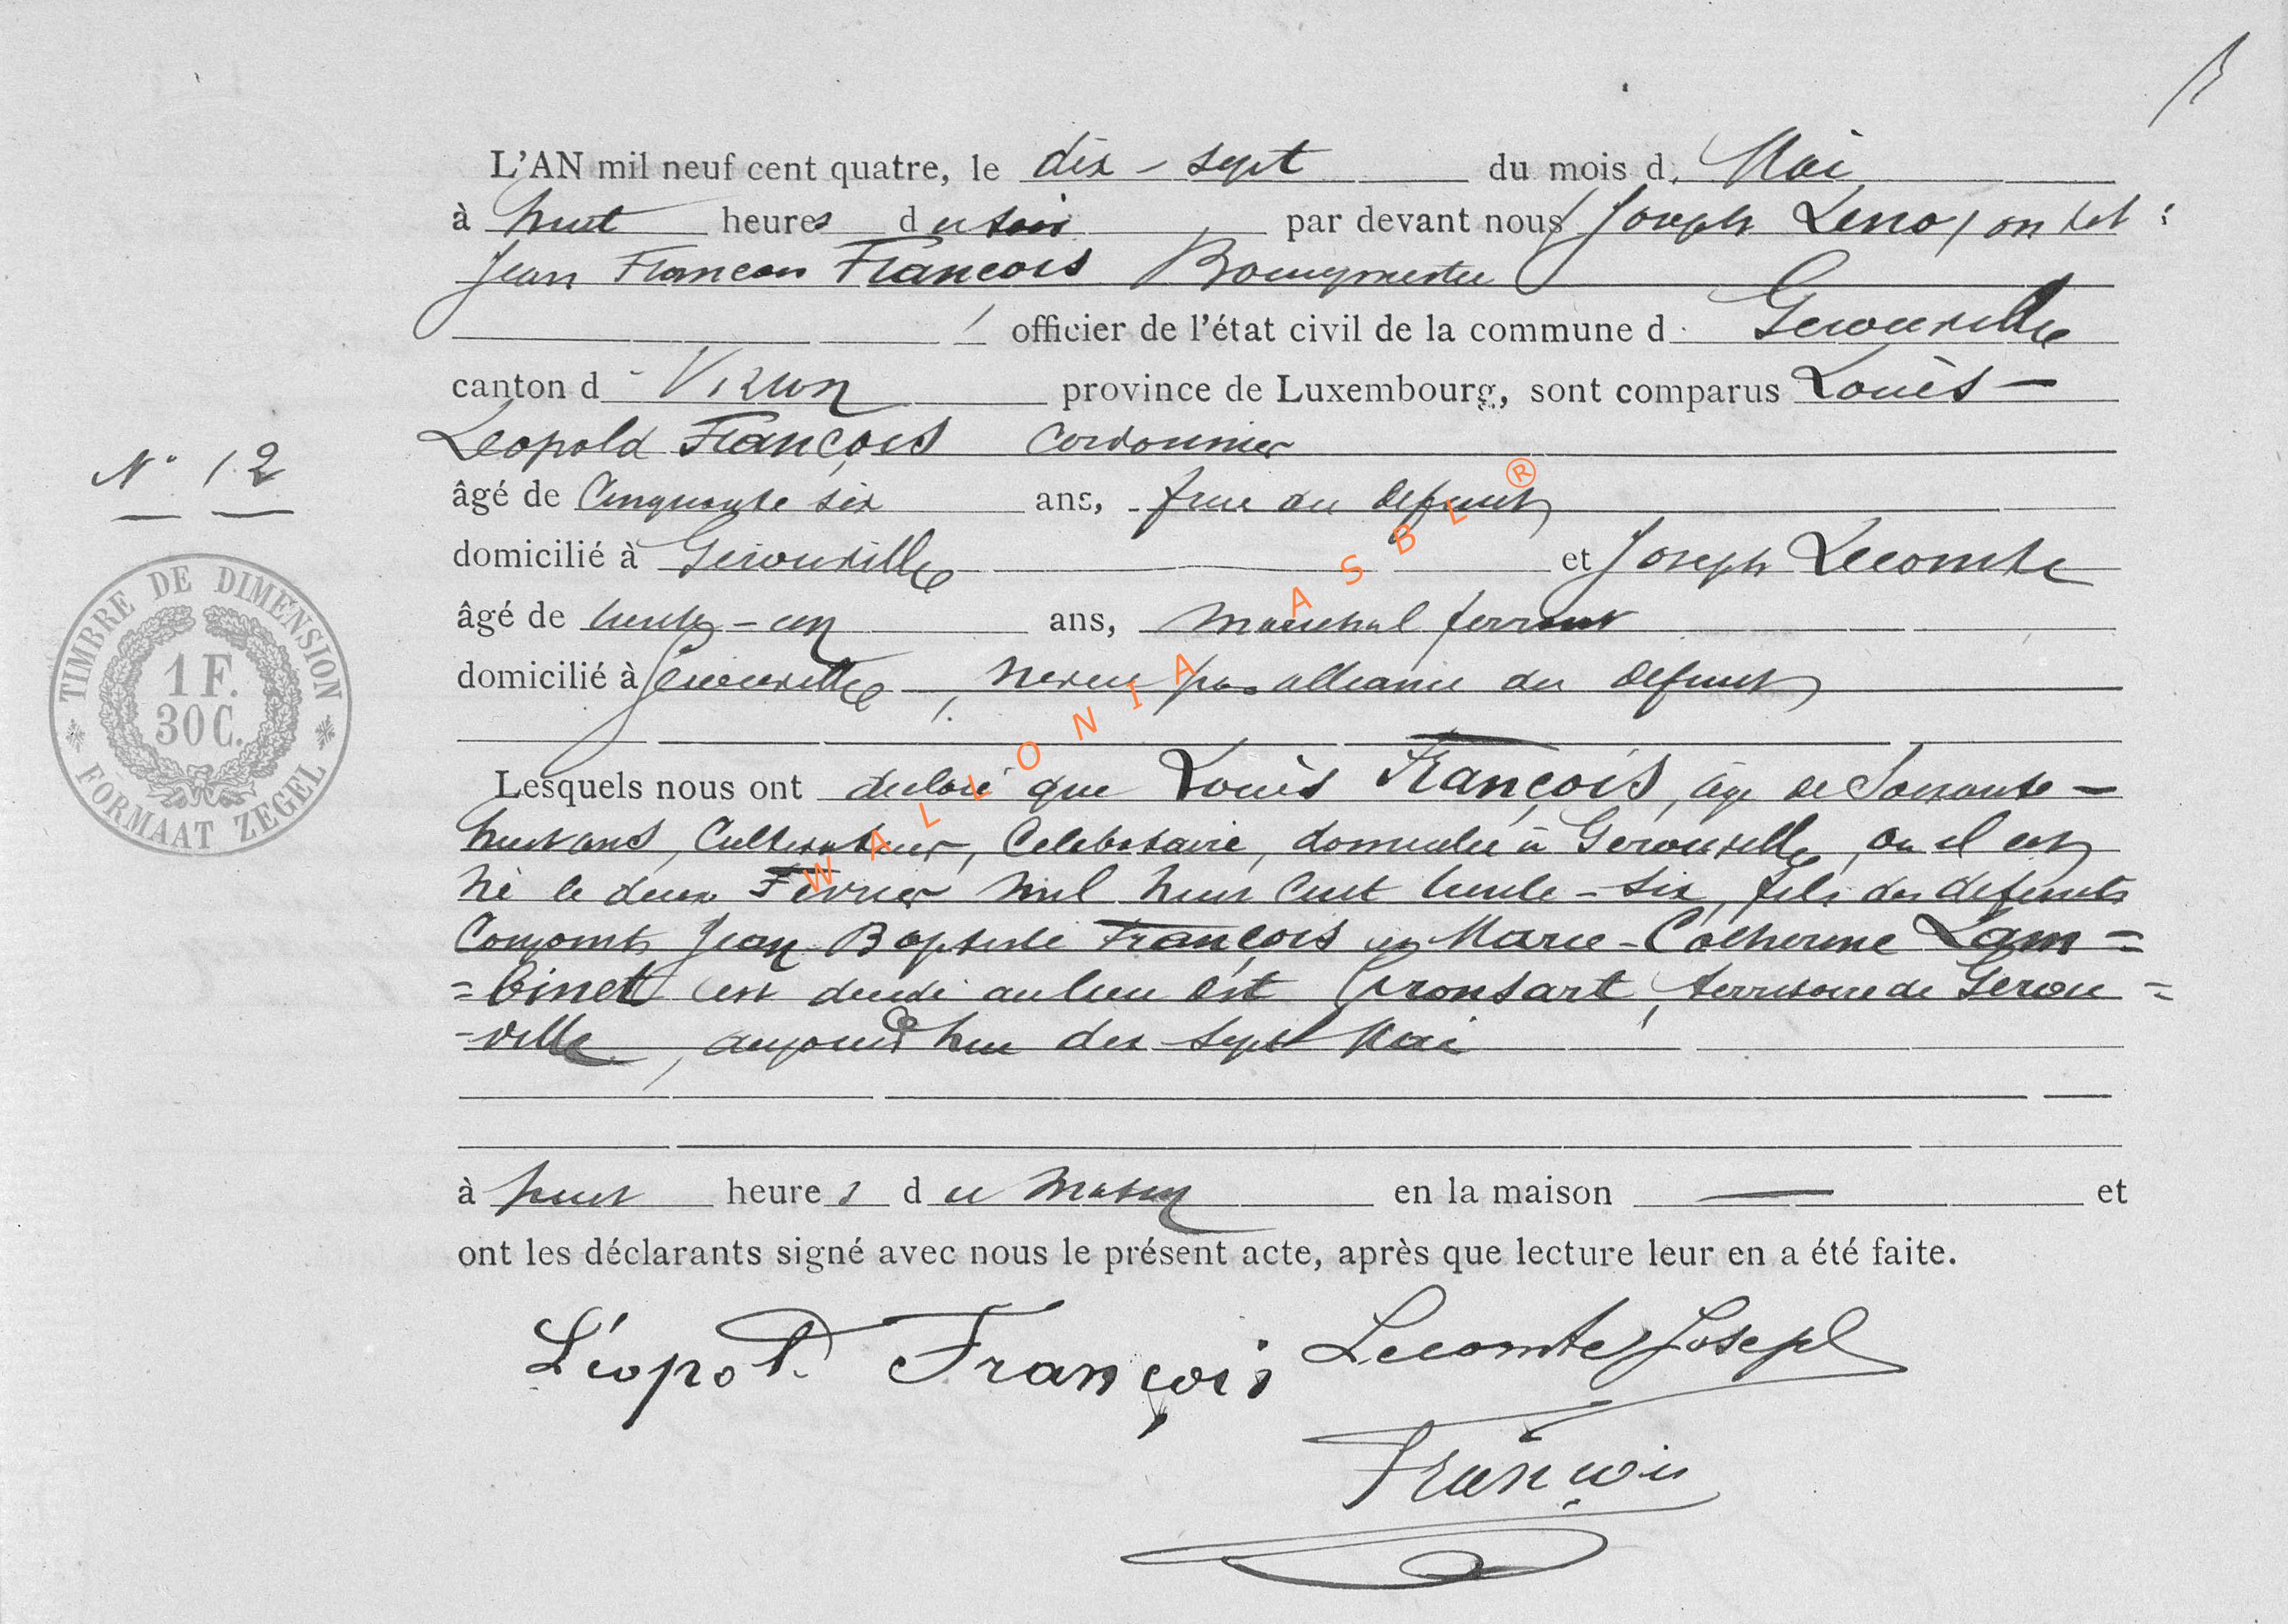 L'AN mil neuf cent quatre, le dix-sept du mois d. Mai
à huit heures du soir par devant nous Joseph
Jean François François Bourgmestre
officier de l'état civil de la commune d Gérouville
canton d Virton province de Luxembourg, sont comparus Louis-
Léopold François Cordonnier
N° 12
âgé de Cinquante six ans, frère du défunt
domicilié à Gérouville et Joseph Lecomte
âgé de trente-un ans, Maréchal ferrant
domicilié à Gérouville, neveu par alliance du défunt
Lesquels nous ont déclaré que Louis François, âgé de Soixante-
huit ans, Cultivateur, Célibataire, domicilié à Gérouville, où il est
né le deux Février mil huit cent trente-six, fils des défunts
Conjoints Jean Baptiste François et Marie-Catherine Lam=
=binet est décédé au lieu dit Gronsart, territoire de Gérou=
-ville, aujourd'hui dix sept Mai
à huit heures du matin en la maison et
ont les déclarants signé avec nous le présent acte, après que lecture leur en a été faite.
Léopold François Lecomte Joseph
François
TIMBRE DE DIMENSION
1 F.
30 C.
FORMAAT ZEGEL
WALLONIA ASBL ®